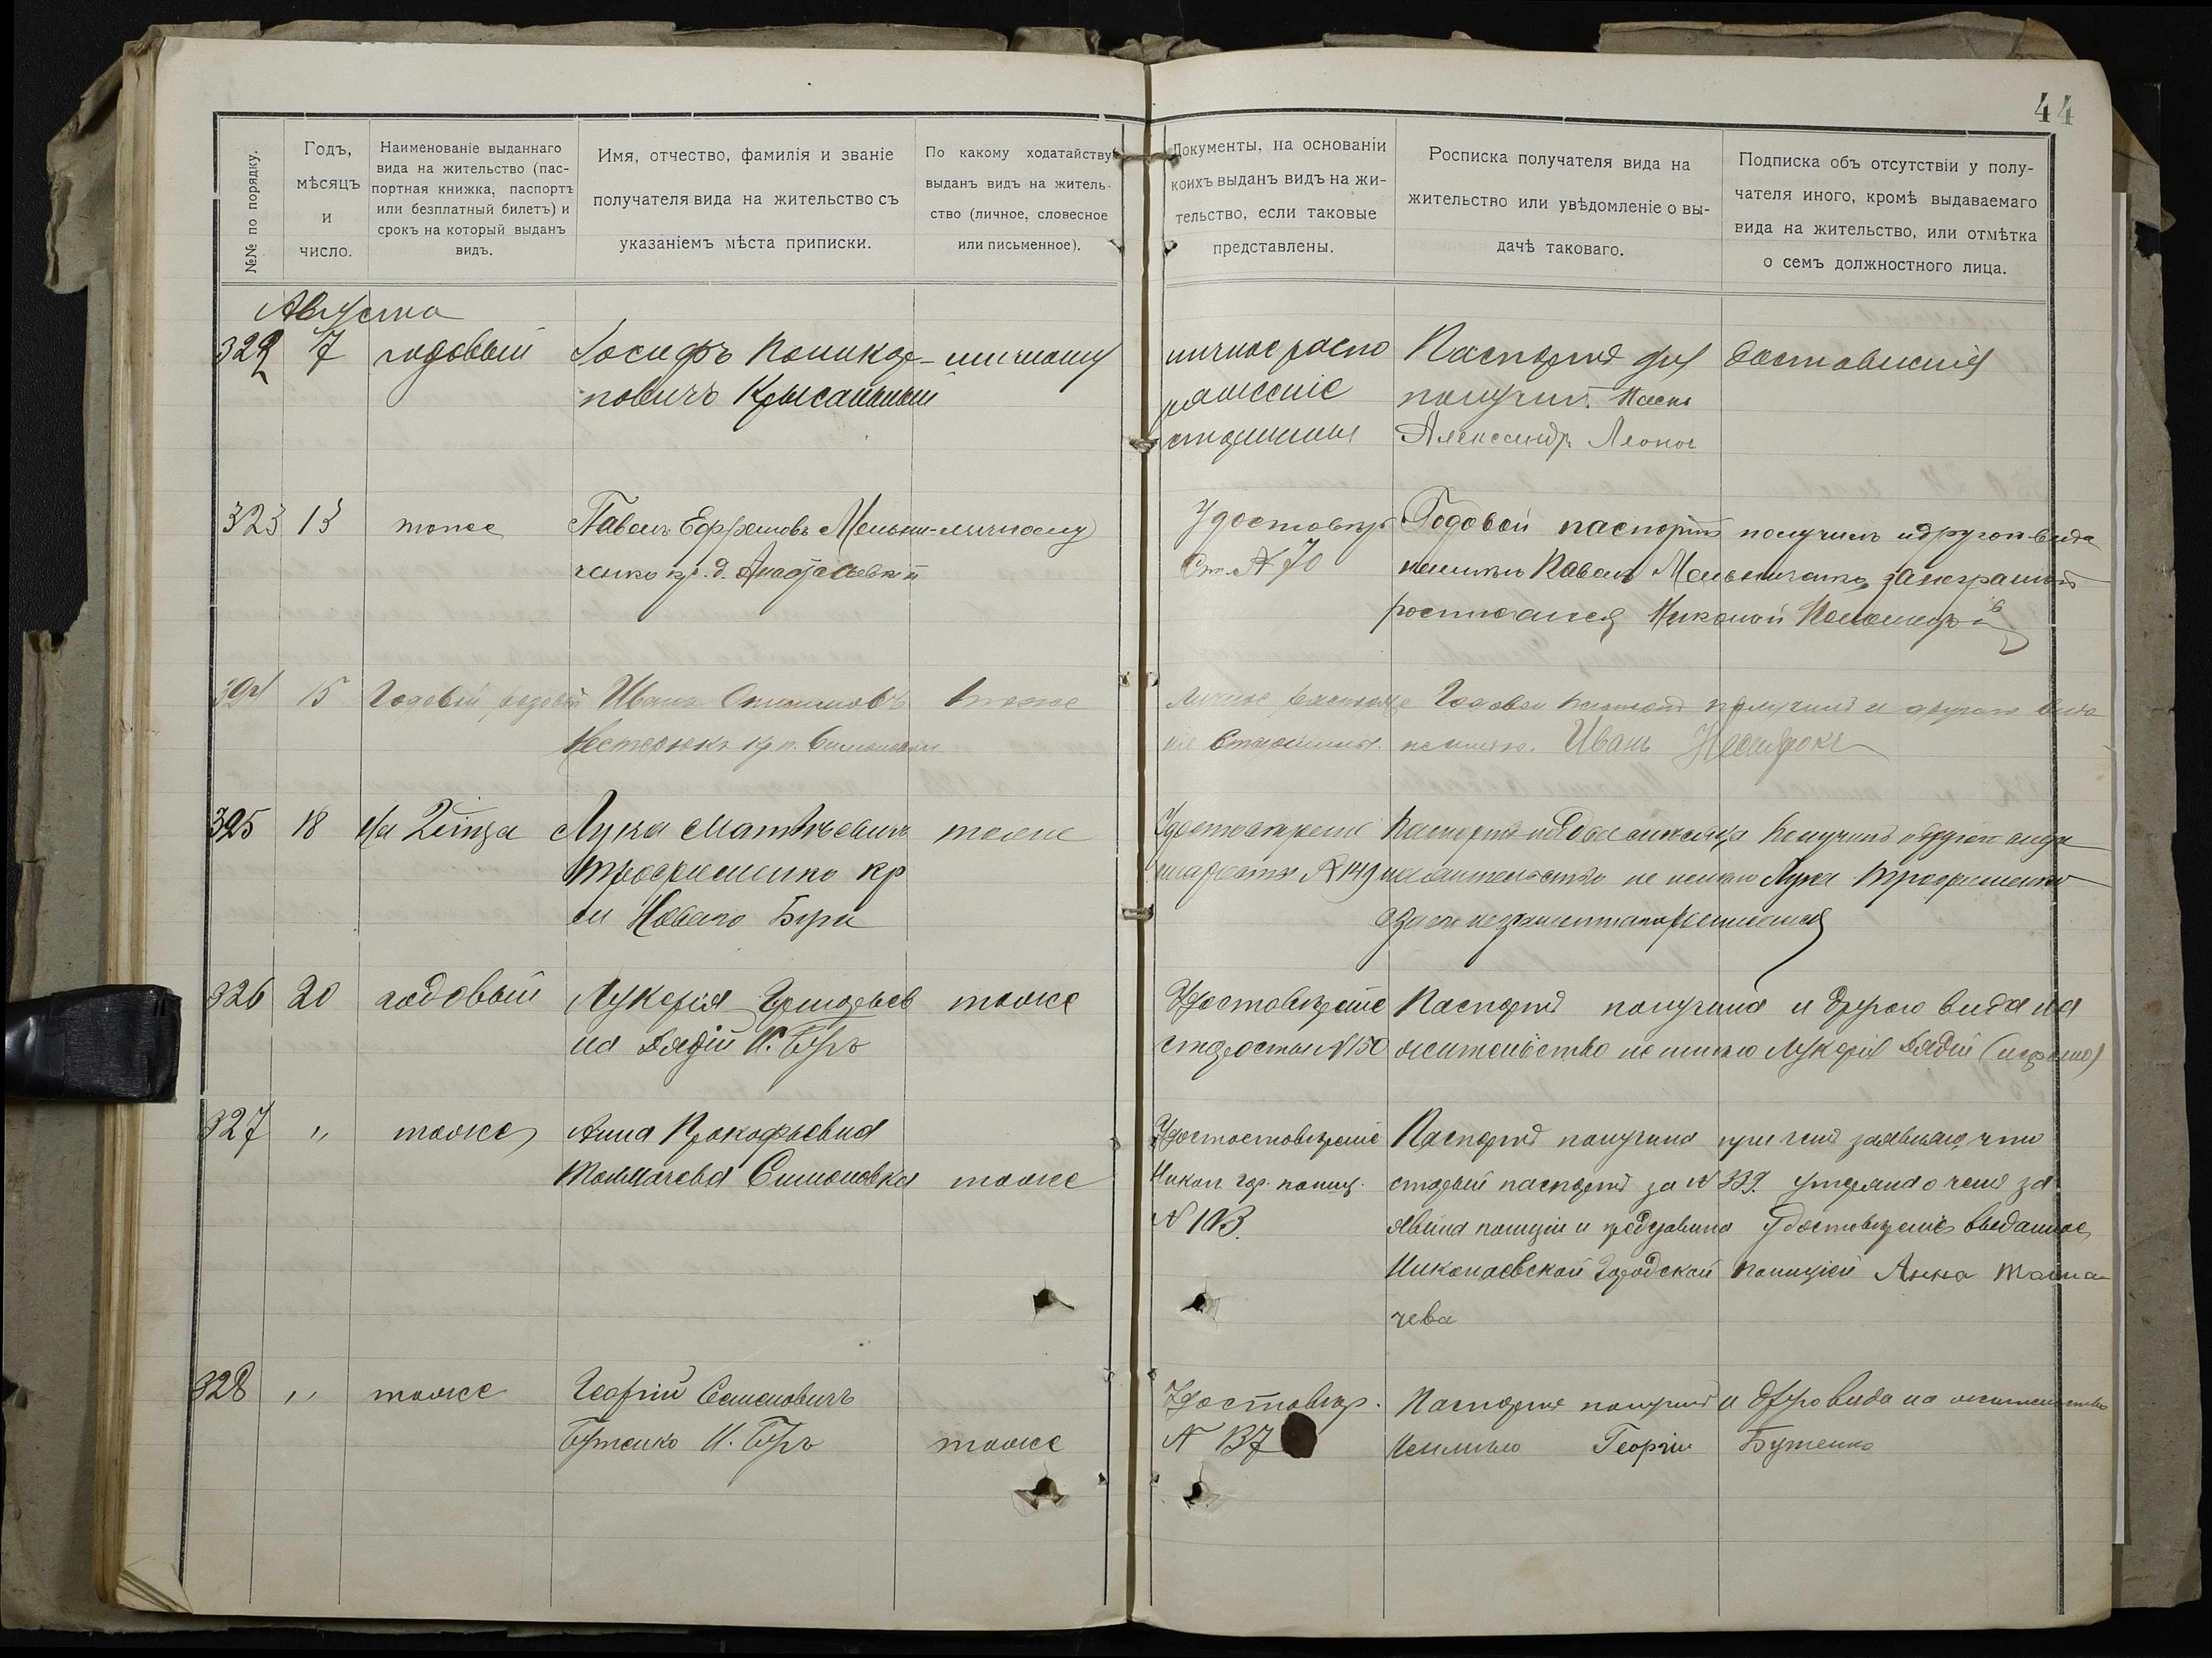 44
№№ по порядку.
Годъ, мѣсяцъ и число.
Наименованіе выданнаго вида на жительство (паспортная книжка, паспортъ или безплатный билетъ) и срокъ на который выданъ видъ.
Имя, отчество, фамилія и званіе получателя вида на жительство съ указаніемъ мѣста приписки.
По какому ходатайству выданъ видъ на жительство (личное, словесное или письменное).
Документы, на основаніи коихъ выданъ видъ на жительство, если таковые представлены.
Росписка получателя вида на жительство или увѣдомленіе о выдачѣ таковаго.
Подписка объ отсутствіи у получателя иного, кромѣ выдаваемаго вида на жительство, или отмѣтка о семъ должностного лица.
Августа
322 7 годовый Іосифъ Никифо- личному личное распо Паспортъ для доставленія
ровичъ ряженіе получил.
старшины Александр Леонов
323 13 тоже Павелъ Ефремовъ Мельни- личному Удостовѣр Годовой паспортъ получилъ и другого вида
ченко кр. д. Ст. № 70 неимѣю Павелъ Мельниченко, занеграмот
росписался Николай
324 15 Годовой Иванъ тоже личное распоряже Годовой паспортъ получилъ и другого вида
Нестерюкъ кр. с. ніе Старшины. неимѣю. Иванъ Нестерюкъ
325 18 на 2 м-ца Лука Матвѣевичъ тоже Удостовѣрені Паспортъ на два мѣсяца получилъ и другого вида
Трофименко кр старосты № 149 на жительство не имѣю Лука Трофименко
с. Новаго Буга
326 20 годовый Лукерія Григорьев тоже Удостовѣреніе Паспортъ получила и другого вида на
на Дядій Н. Бугъ старосты № 150 жительство неимѣю Лукерія Дядій (неграмо)
327 " тоже Анна Прокофьевна Удостостовѣреніе Паспортъ получила при чемъ заявляю, что
Толмачева Симоновка тоже Никол. гор. полиц. старый паспортъ за № 339. утеряла о чемъ за
№ 103. явила полиціи и представила Удостовѣреніе выданное
Николаевской Городской полиціей Анна Толма
чева
328 " тоже Георгій Семеновичъ Удостовѣр. Паспортъ получилъ и другого вида на жительство
Бутенко Н. Бугъ тоже № 137 Неимѣю Георгій Бутенко